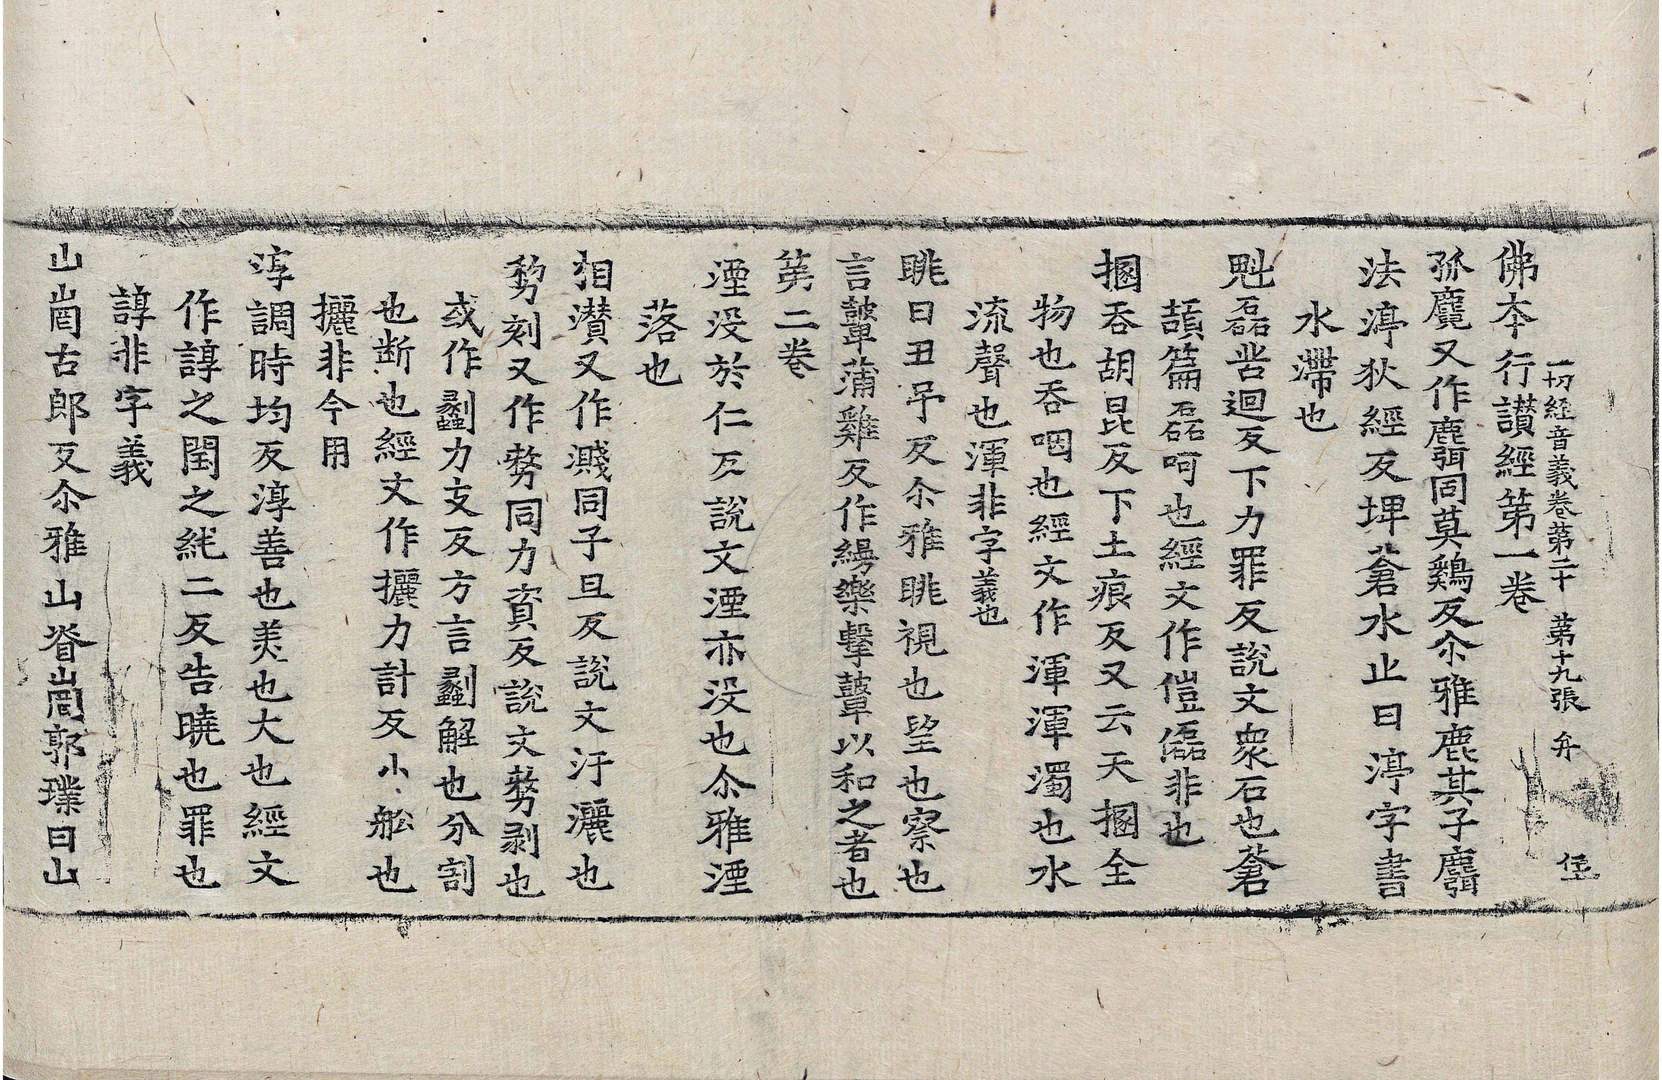 一切経音義卷第二十 第十九張 弁 伭
佛本行讃經第一卷
孤麑又作麛同莫鷄反尒雅鹿其子麛
法渟狄經反埤蒼水止曰渟字書
水滯也
魁磊苦迴反下力罪反說文衆石也蒼
頡篇磊砢也經文作磑儡非也
掴吞胡昆反下土痕反又云天掴全
物也吞咽也經文作渾渾濁也水
流聲也渾非字義也
眺日丑弔反尒雅眺視也望也察也
言鼙蒲雞反作縵樂擊鼙以和之者也
第二卷
湮没於仁反說文湮亦没也尒雅湮
落也
相濽又作濺同子旦反說文汙灑也
剺刻又作剺同力資反說文剺剥也
或作劙力支反方言劙解也分割
也断也經文作攦力計反小舩也
攦非今用
淳調時均反淳善也美也大也經文
作諄之閏之純二反告曉也罪也
諄非字義
山崗古郎反尒雅山脊崗郭璞曰山